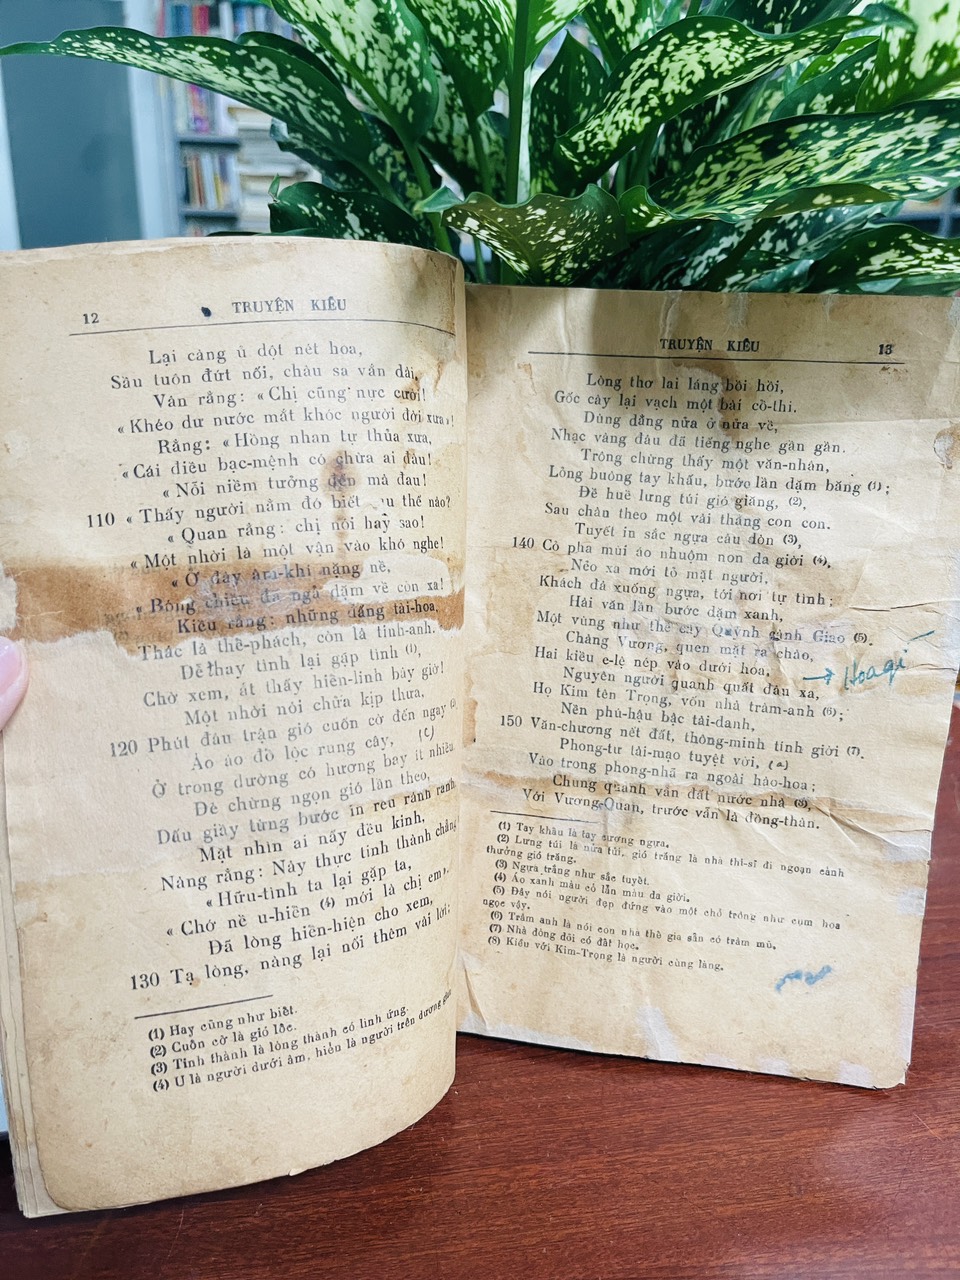 12 TRUYỆN KIỀU
Lại càng ủ dột nét hoa,
Sầu tuôn đứt nối, châu sa vắn dài.
Vân rằng: «Chị cũng nực cười!
«Khéo dư nước mắt khóc người đời xưa»!
Rằng: «Hồng nhan tự thủa xưa,
«Cái điều bạc-mệnh có chừa ai đâu!
«Nỗi niềm tưởng đến mà đau!
110 «Thấy người nằm đó biết sau thế nào?
«Quan rằng: chị nói hay sao!
«Một nhời là một vận vào khó nghe!
«Ở đây âm-khí nặng nề,
«Bóng chiều đã ngả dặm về còn xa!
Kiều rằng: những đấng tài-hoa,
Thác là thể-phách, còn là tinh-anh.
Dễ hay tình lại gặp tình (1),
Chờ xem, ắt thấy hiển-linh bây giờ!
Một nhời nói chửa kịp thưa,
120 Phút đâu trận gió cuốn cờ đến ngay (2)
Ào ào đổ lộc rung cây,
Ở trong dường có hương bay ít nhiều.
Đè chừng ngọn gió lần theo,
Dấu giày từng bước in rêu rành rành
Mặt nhìn ai nấy đều kinh,
Nàng rằng: Này thực tinh thành chẳng
«Hữu-tình ta lại gặp ta,
«Chớ nề u-hiển (4) mới là chị em».
Đã lòng hiển-hiện cho xem,
130 Tạ lòng, nàng lại nối thêm vài lời;
(1) Hay cũng như biết.
(2) Cuốn cờ là gió lốc.
(3) Tinh thành là lòng thành có linh ứng.
(4) U là người dưới âm, hiển là người trên dương
TRUYỆN KIỀU 13
Lòng thơ lai láng bồi hồi,
Gốc cây lại vạch một bài cổ-thi.
Dùng dằng nửa ở nửa về,
Nhạc vàng đâu đã tiếng nghe gần gần.
Trông chừng thấy một văn-nhân,
Lỏng buông tay khấu, bước lần dặm băng (1);
Đề huề lưng túi gió giăng, (2),
Sau chân theo một vài thằng con con.
Tuyết in sắc ngựa câu dòn (3),
140 Cỏ pha mùi áo nhuộm non da giời (4),
Nẻo xa mới tỏ mặt người,
Khách đà xuống ngựa, tới nơi tự tình;
Hài văn lần bước dặm xanh,
Một vùng như thể cây Quỳnh cành Giao (5).
Chàng Vương, quen mặt ra chào,
Hai kiều e-lệ nép vào dưới hoa, → Hoa gì
Nguyên người quanh quất đâu xa,
Họ Kim tên Trọng, vốn nhà trâm-anh (6);
Nền phú-hậu bậc tài-danh,
150 Văn-chương nết đất, thông-minh tính giời (7).
Phong-tư tài-mạo tuyệt vời,
Vào trong phong-nhã ra ngoài hào-hoa;
Chung quanh vẫn đất nước nhà (8),
Với Vương-Quan, trước vẫn là đồng-thân.
(1) Tay khấu là tay cương ngựa.
(2) Lưng túi là nửa túi, gió trăng là nhà thi-sĩ đi ngoạn cảnh
thưởng gió trăng.
(3) Ngựa trắng như sắc tuyết.
(4) Áo xanh màu cỏ lẫn màu da giời.
(5) Đây nói người đẹp đứng vào một chỗ trông như cụm hoa
ngọc vậy.
(6) Trâm anh là nói con nhà thế gia sẵn có trâm mũ.
(7) Nhà dòng dõi có đất học.
(8) Kiều với Kim-Trọng là người cùng làng.